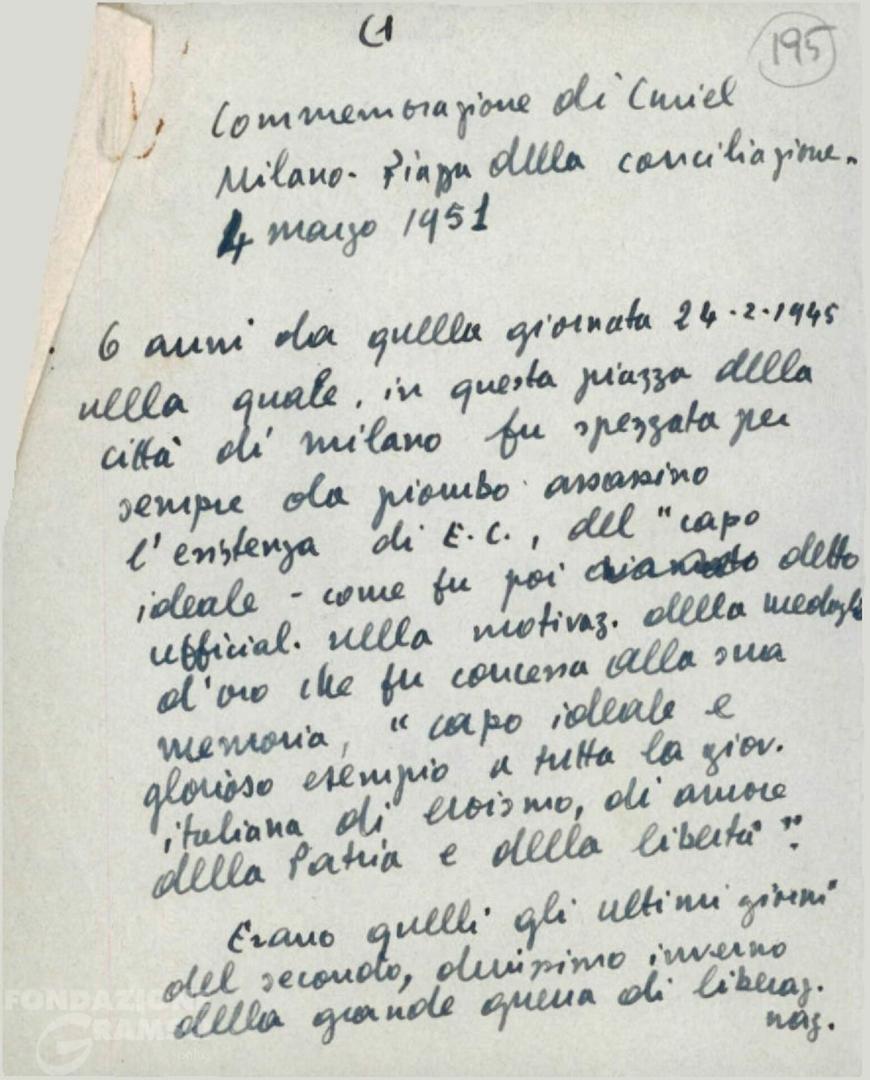 (1
195
Commemorazione di Curiel
Milano - Piazza della conciliazione.
4 marzo 1951
6 anni da quella giornata 24.2.1945
nella quale, in questa piazza della
città di milano fu spezzata per
sempre da piombo assassino
l'esistenza di E.C., del "capo
ideale - come fu poi detto
ufficial. nella motivaz. della medaglia
d'oro che fu concessa alla sua
memoria, "capo ideale e
glorioso esempio a tutta la giov.
italiana di eroismo, di amore
della Patria e della libertà".
Erano quelli gli ultimi giorni
del secondo, durissimo inverno
della grande guerra di liberaz.
naz.
FONDAZIONE
GRAMSCI
onlus